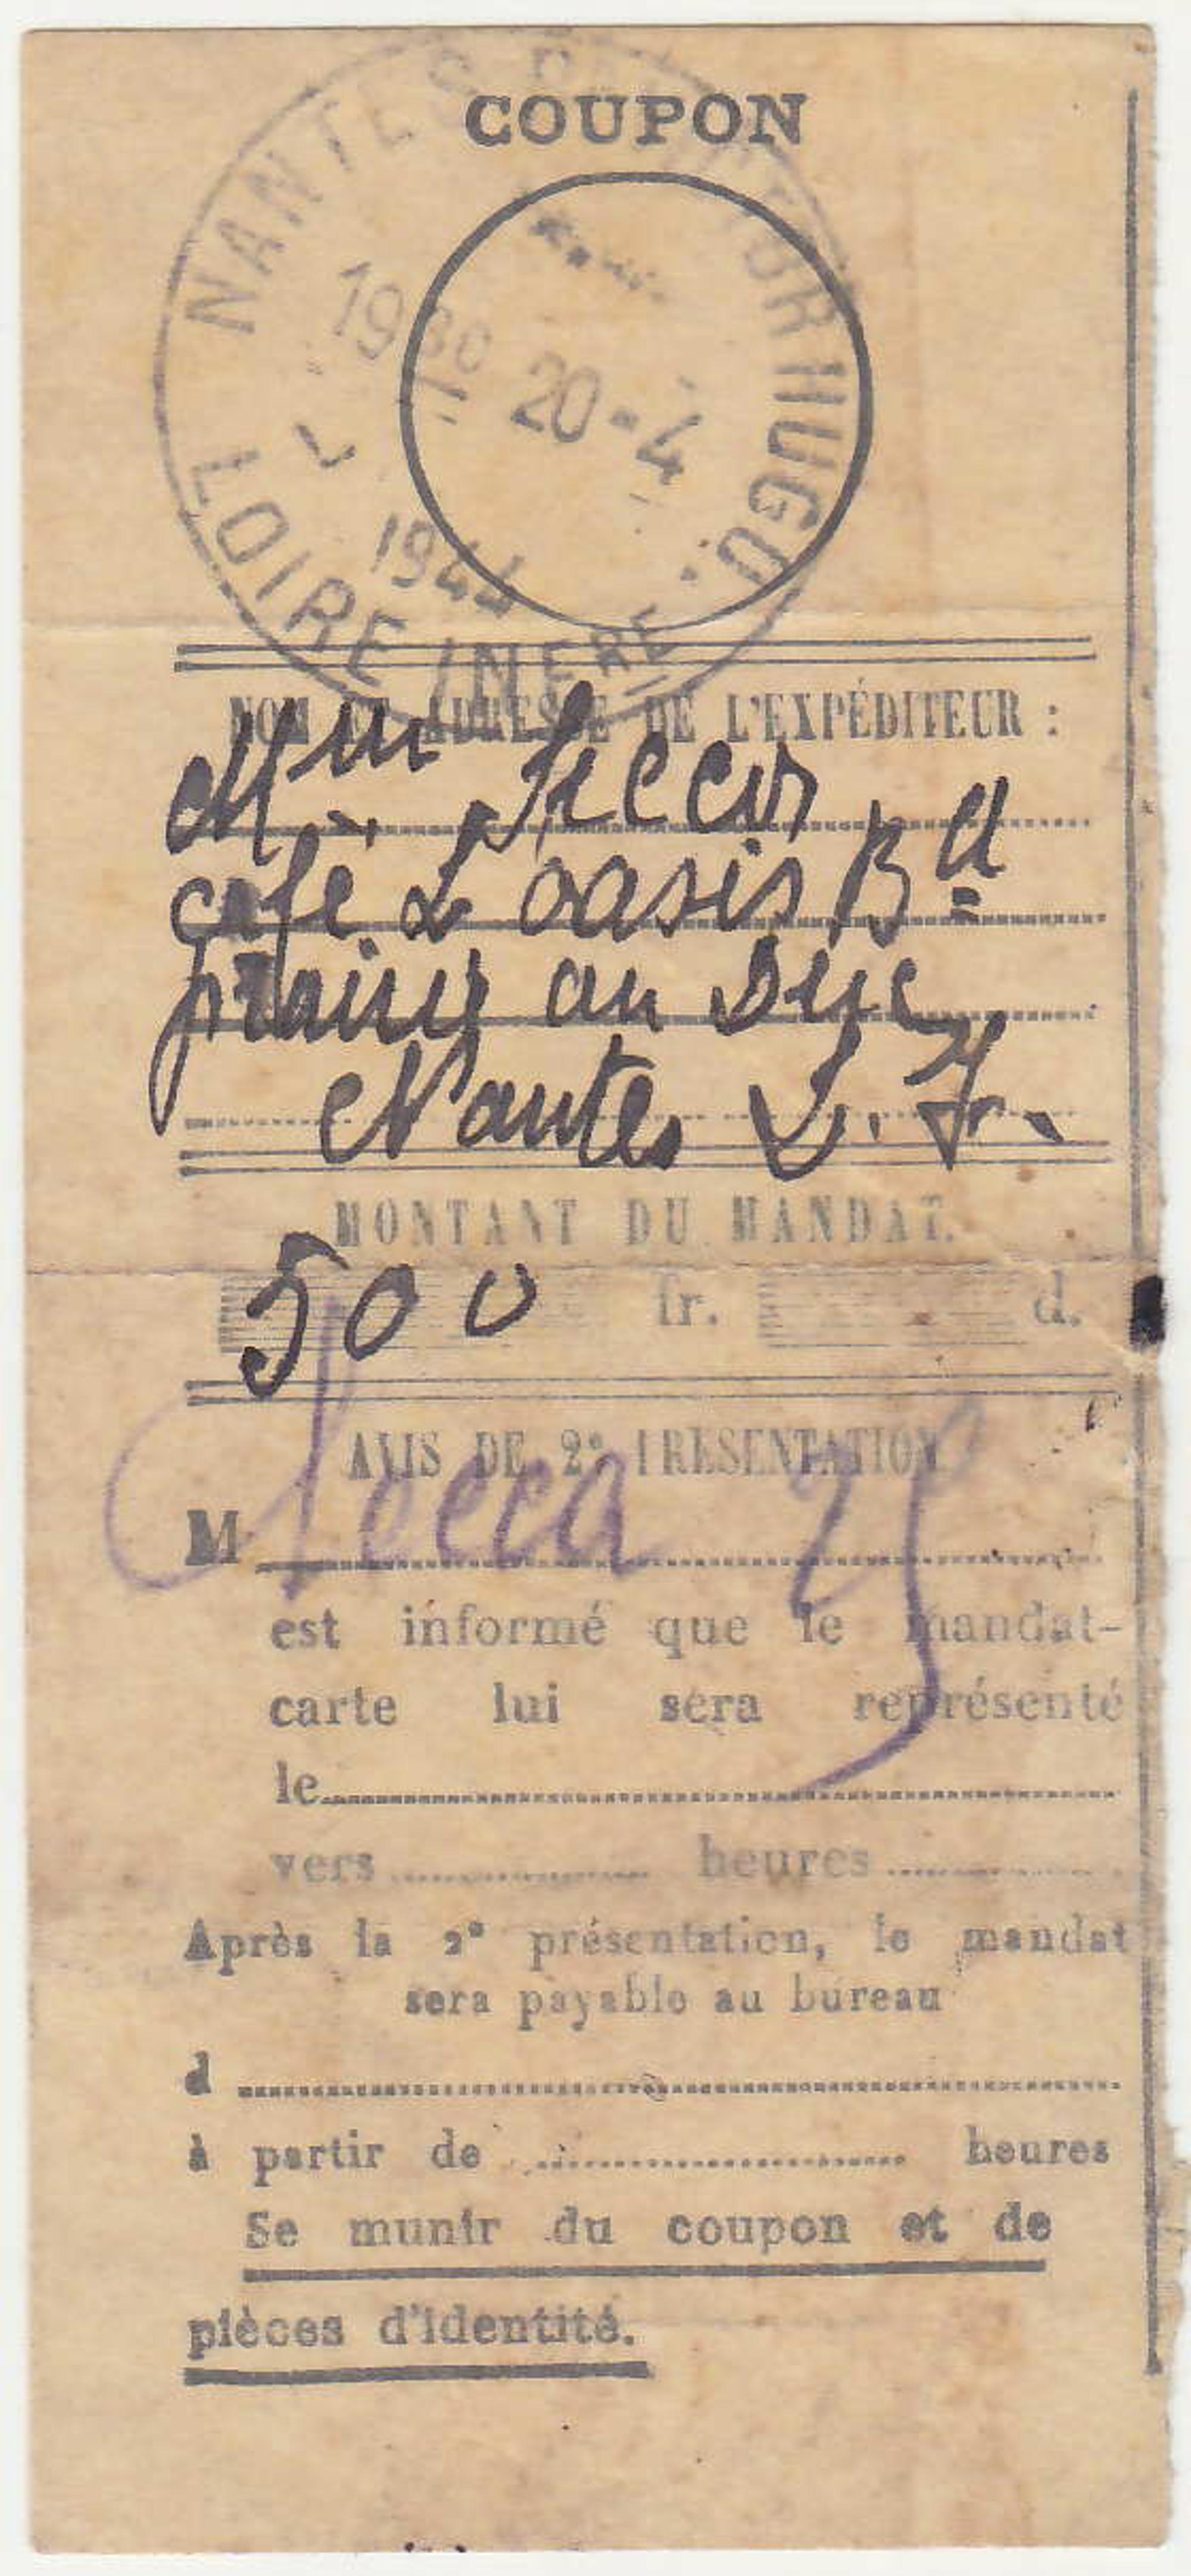 COUPON
NANTES R. VICTOR HUGO.
1930
20-4
1944
LOIRE INFRE
NOM ET ADRESSE DE L'EXPÉDITEUR :
Mme
café L'oasis Bd
prairie au Duc
Nantes L. Ir.
MONTANT DU MANDAT.
500 fr. d.
AVIS DE 2e PRESENTATION
M
est informé que le mandat-
carte lui sera représenté
le
vers heures
Après la 2e présentation, le mandat
sera payable au bureau
d
à partir de heures
Se munir du coupon et de
pièces d'identité.